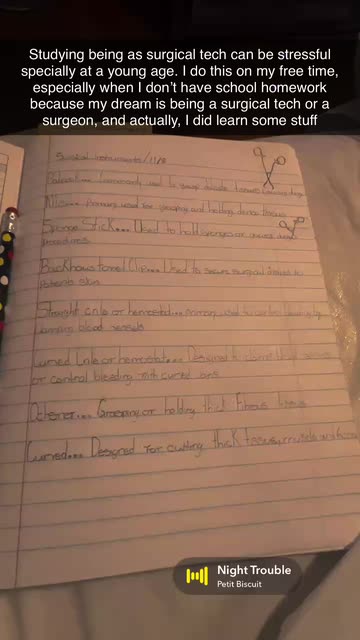 Studying being as surgical tech can be stressful
specially at a young age. I do this on my free time,
especially when I don't have school homework
because my dream is being a surgical tech or a
surgeon, and actually, I did learn some stuff
Surgical instruments/11/8
used to grasp delicate tissues
used for grasping and holding dense tissue
Sponge Stick... Used to hold sponges or
procedures
Backhaus towel Clip... Used to secure surgical drapes to
patients skin
Straight or hemostat... used to control bleeding by
blood vessels
Curved or hemostat... Designed to clamp blood
or control bleeding with curved
Grasping or holding thick Fibrous tissue
Curved... Designed for cutting thick tissue, muscle and
Night Trouble
Petit Biscuit